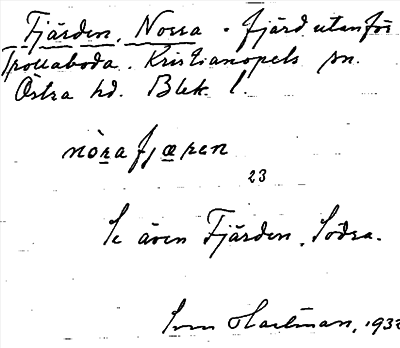 Fjärden, Norra - fjärd utanför
Trollaboda. Kristianopels sn.
Östra hd. Blek l.
nòrafjæren
23
Se även Fjärden, Södra.
Sven Hartman, 1932